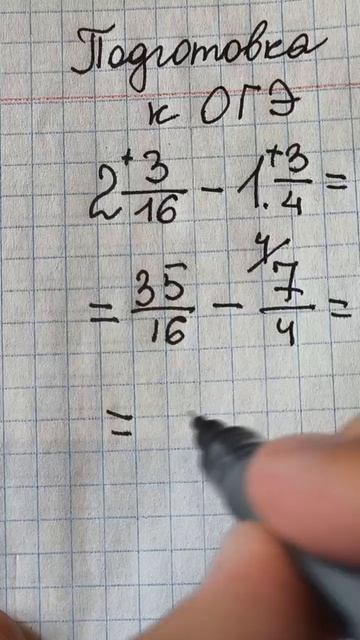 Подготовка
к ОГЭ
2 + 3/16 - 1. + 3/4 =
= 35/16 - 4/ 7/4 =
=